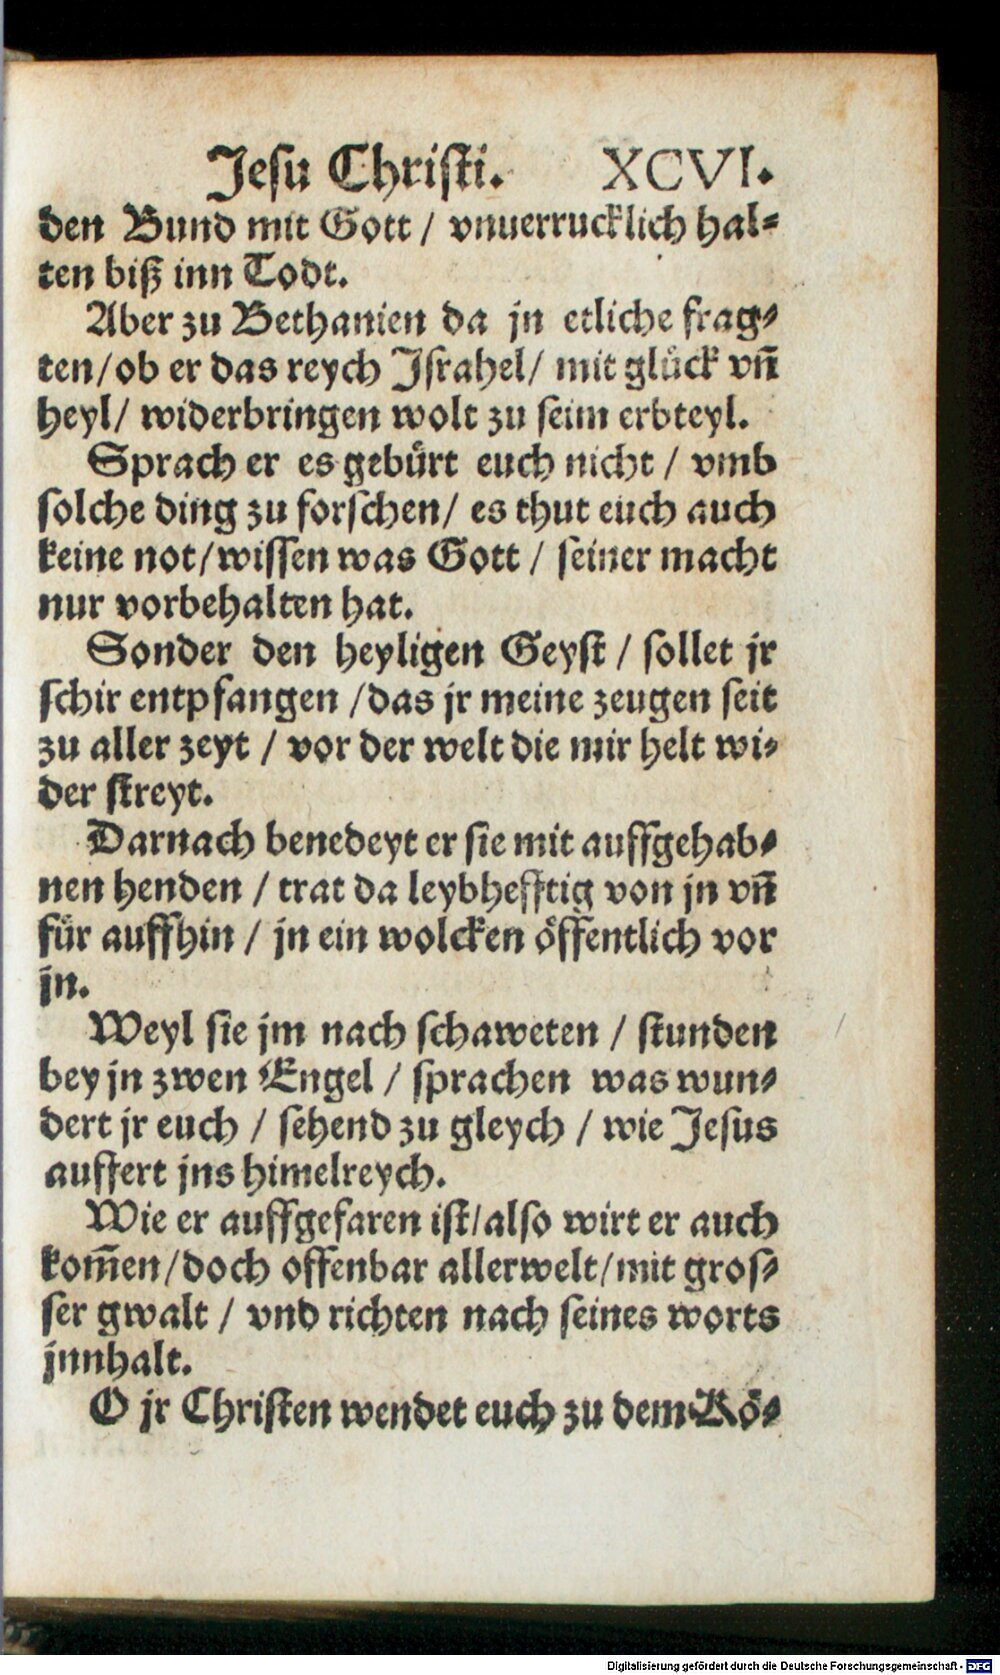 Jesu Christi. XCVI.
den Bund mit Gott / vnuerrucklich hal-
ten biß inn Todt.
Aber zu Bethanien da jn etliche frag-
ten/ ob er das reych Jsrahel/ mit glück vñ
heyl/ widerbringen wolt zu seim erbteyl.
Sprach er es gebürt euch nicht / vmb
solche ding zu forschen/ es thut euch auch
keine not/ wissen was Gott / seiner macht
nur vorbehalten hat.
Sonder den heyligen Geyst / sollet jr
schir entpfangen / das jr meine zeugen seit
zu aller zeyt / vor der welt die mir helt wi-
der streyt.
Darnach benedeyt er sie mit auffgehab-
nen henden / trat da leybhefftig von jn vñ
für auffhin / jn ein wolcken öffentlich vor
jn.
Weyl sie jm nach schaweten / stunden
bey jn zwen Engel / sprachen was wun-
dert jr euch / sehend zu gleych / wie Jesus
auffert jns himelreych.
Wie er auffgefaren ist/ also wirt er auch
kom̃en/ doch offenbar allerwelt/ mit gros-
ser gwalt / vnd richten nach seines worts
jnnhalt.
O jr Christen wendet euch zu dem Kö-
Digitalisierung gefördert durch die Deutsche Forschungsgemeinschaft - DFG